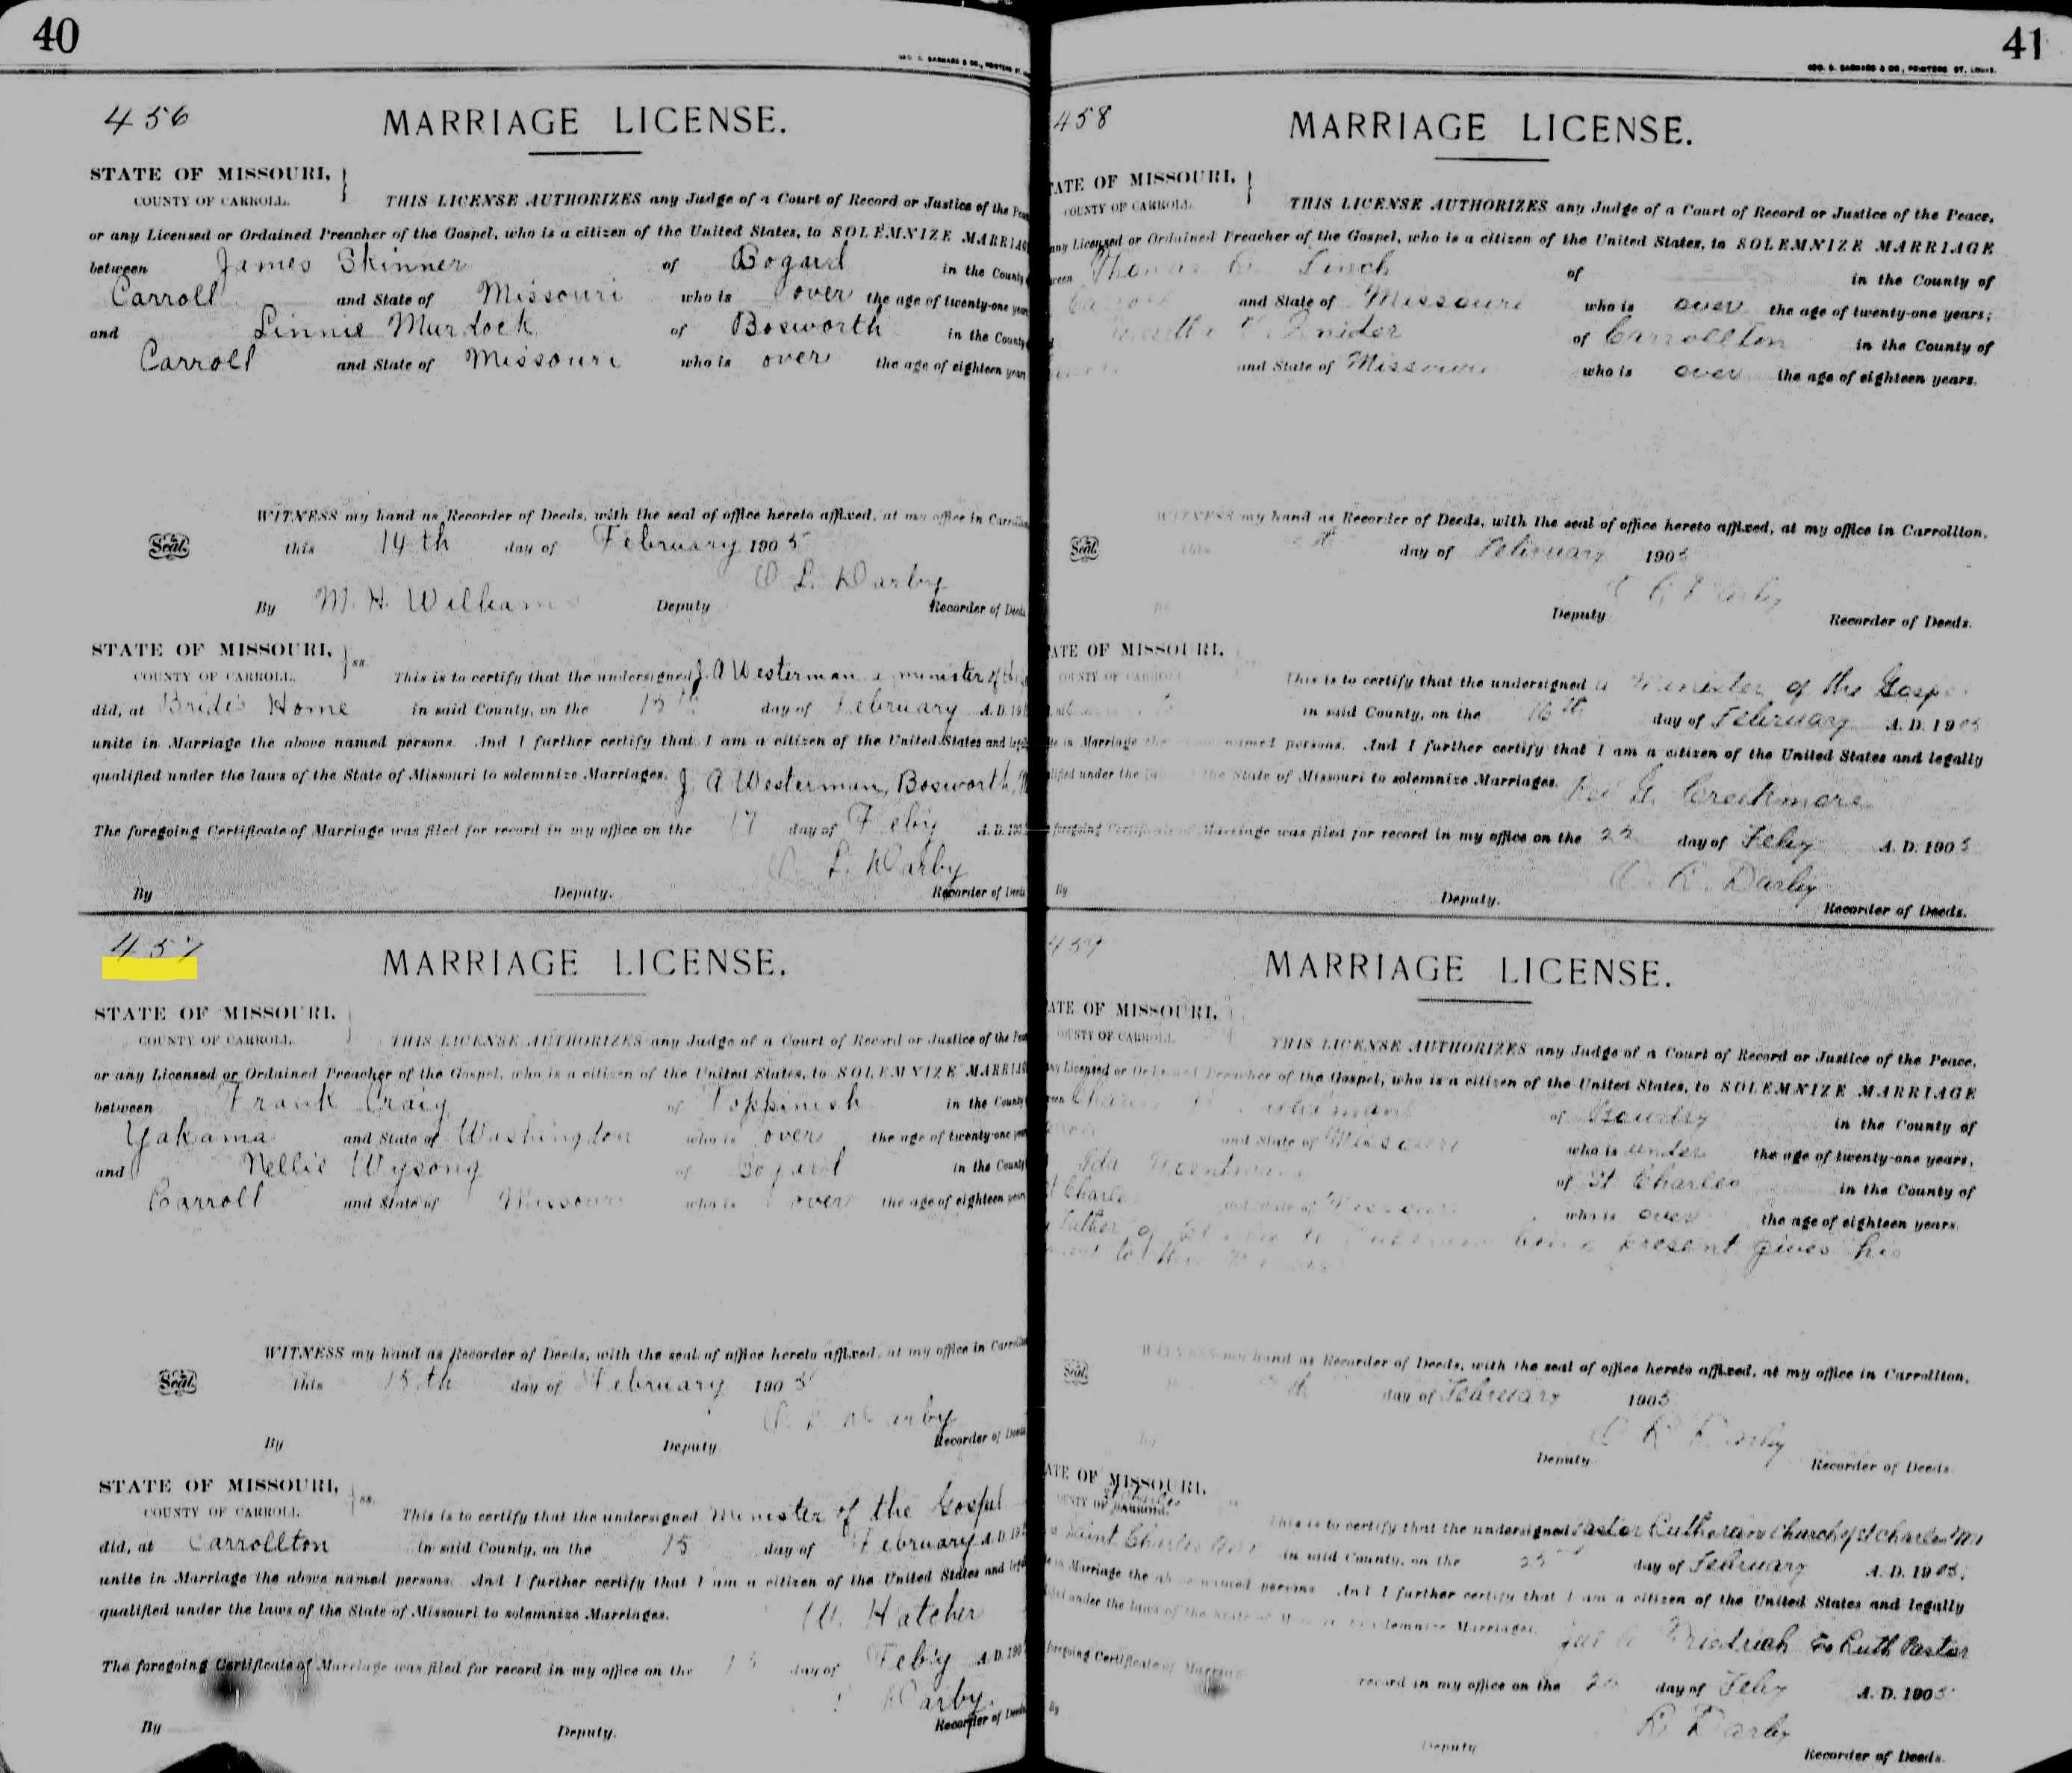 40
GEO. D. BARNARD & CO., PRINTERS ST.
456
MARRIAGE LICENSE.
STATE OF MISSOURI,
COUNTY OF CARROLL.
THIS LICENSE AUTHORIZES any Judge of a Court of Record or Justice of the
or any Licensed or Ordained Preacher of the Gospel, who is a citizen of the United States, to SOLEMNIZE
between James Skinner of Bogard in the County
Carroll and State of Missouri who is over the age of twenty-one
and Linnie Murdock of Bosworth in the County
Carroll and State of Missouri who is over the age of eighteen
WITNESS my hand as Recorder of Deeds, with the seal of office hereto affixed, at my office in
Seal. this 14th day of February 1905
L. Darby
By M. H. Williams Deputy Recorder of Deeds
STATE OF MISSOURI, ss.
COUNTY OF CARROLL. This is to certify that the undersigned J. A Westerman a minister of
did, at Bride's Home in said County, on the 15th day of February A. D.
unite in Marriage the above named persons. And I further certify that I am a citizen of the United States and
qualified under the laws of the State of Missouri to solemnize Marriages. J A Westerman, Bosworth,
The foregoing Certificate of Marriage was filed for record in my office on the 17 day of Feby A.D. 190
L. Darby
By Deputy. Recorder of Deeds
457
MARRIAGE LICENSE.
STATE OF MISSOURI,
COUNTY OF CARROLL.
THIS LICENSE AUTHORIZES any Judge of a Court of Record or Justice of the
or any Licensed or Ordained Preacher of the Gospel, who is a citizen of the United States, to SOLEMNIZE
between Frank Craig of Toppinish in the County
Yakama and State of Washington who is over the age of twenty-one
and Nellie Wysong of Bogard in the County
Carroll and State of Missouri who is over the age of eighteen
WITNESS my hand as Recorder of Deeds, with the seal of office hereto affixed, at my office in
Seal. this 15th day of February 1905
Darby
By Deputy Recorder of Deeds
STATE OF MISSOURI, ss.
COUNTY OF CARROLL This is to certify that the undersigned Minister of the Gospel
did, at Carrollton in said County, on the 15 day of February A. D.
unite in Marriage the above named persons. And I further certify that I am a citizen of the United States and
qualified under the laws of the State of Missouri to solemnize Marriages. W. Hatcher
The foregoing Certificate of Marriage was filed for record in my office on the day of Feby A.D. 190
Darby.
By Deputy. Recorder of Deeds
41
GEO. D. BARNARD & CO., PRINTERS ST. LOUIS.
458
MARRIAGE LICENSE.
OF MISSOURI,
COUNTY OF CARROLL.
THIS LICENSE AUTHORIZES any Judge of a Court of Record or Justice of the Peace,
any Licensed or Ordained Preacher of the Gospel, who is a citizen of the United States, to SOLEMNIZE MARRIAGE
Thomas Linch of in the County of
and State of Missouri who is over the age of twenty-one years;
Snider of Carrollton in the County of
and State of Missouri who is over the age of eighteen years.
WITNESS my hand as Recorder of Deeds, with the seal of office hereto affixed, at my office in Carrollton,
Seal. this day of February 1905
Darby
Deputy Recorder of Deeds.
OF MISSOURI,
COUNTY OF CARROLL This is to certify that the undersigned a Minister of the Gospel
in said County, on the 16th day of February A. D. 1905
in Marriage the named persons. And I further certify that I am a citizen of the United States and legally
under the the State of Missouri to solemnize Marriages. G. Creekmore
Certificate of Marriage was filed for record in my office on the 22 day of Feby A. D. 1905
R. Darby
By Deputy. Recorder of Deeds.
459
MARRIAGE LICENSE.
OF MISSOURI,
COUNTY OF CARROLL.
THIS LICENSE AUTHORIZES any Judge of a Court of Record or Justice of the Peace,
Licensed or Preacher of the Gospel, who is a citizen of the United States, to SOLEMNIZE MARRIAGE
of in the County of
and State of Missouri who is under the age of twenty-one years,
Ida of St Charles in the County of
Charles and State of who is over the age of eighteen years.
father of being present gives his
to
WITNESS my hand as Recorder of Deeds, with the seal of office hereto affixed, at my office in Carrollton,
Seal. day of February 1905
R Darby
Deputy Recorder of Deeds
OF MISSOURI,
OF CARROLL.
This is to certify that the undersigned Pastor Lutheran Church of St Charles Mo
Saint Charles in said County, on the day of February A. D. 1905,
in Marriage the named persons And I further certify that I am a citizen of the United States and legally
under the laws of the State of to solemnize Marriages. Friedrich Ev Luth Pastor
foregoing Certificate of Marriage
record in my office on the day of Feby A. D. 1905
R Darby
By Deputy Recorder of Deeds.